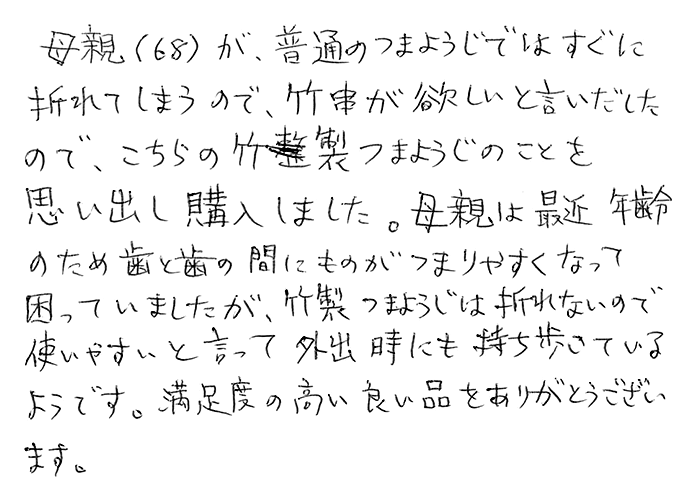 母親(68)が、普通のつまようじではすぐに
折れてしまうので、竹串が欲しいと言いだした
ので、こちらの竹製つまようじのことを
思い出し購入しました。母親は最近年齢
のため歯と歯の間にものがつまりやすくなって
困っていましたが、竹製つまようじは折れないので
使いやすいと言って外出時にも持ち歩きている
ようです。満足度の高い良い品をありがとうござい
ます。